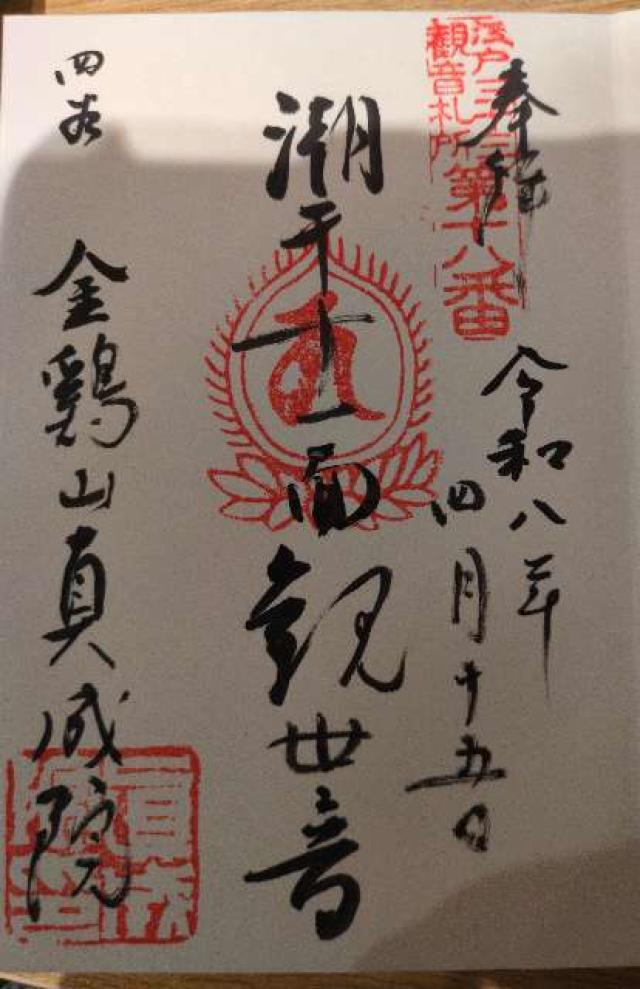 奉拝
江戸三十三
観音札所
第十八番
令和八年
四月十五日
潮干十一面観世音
四谷
金鶏山真成院